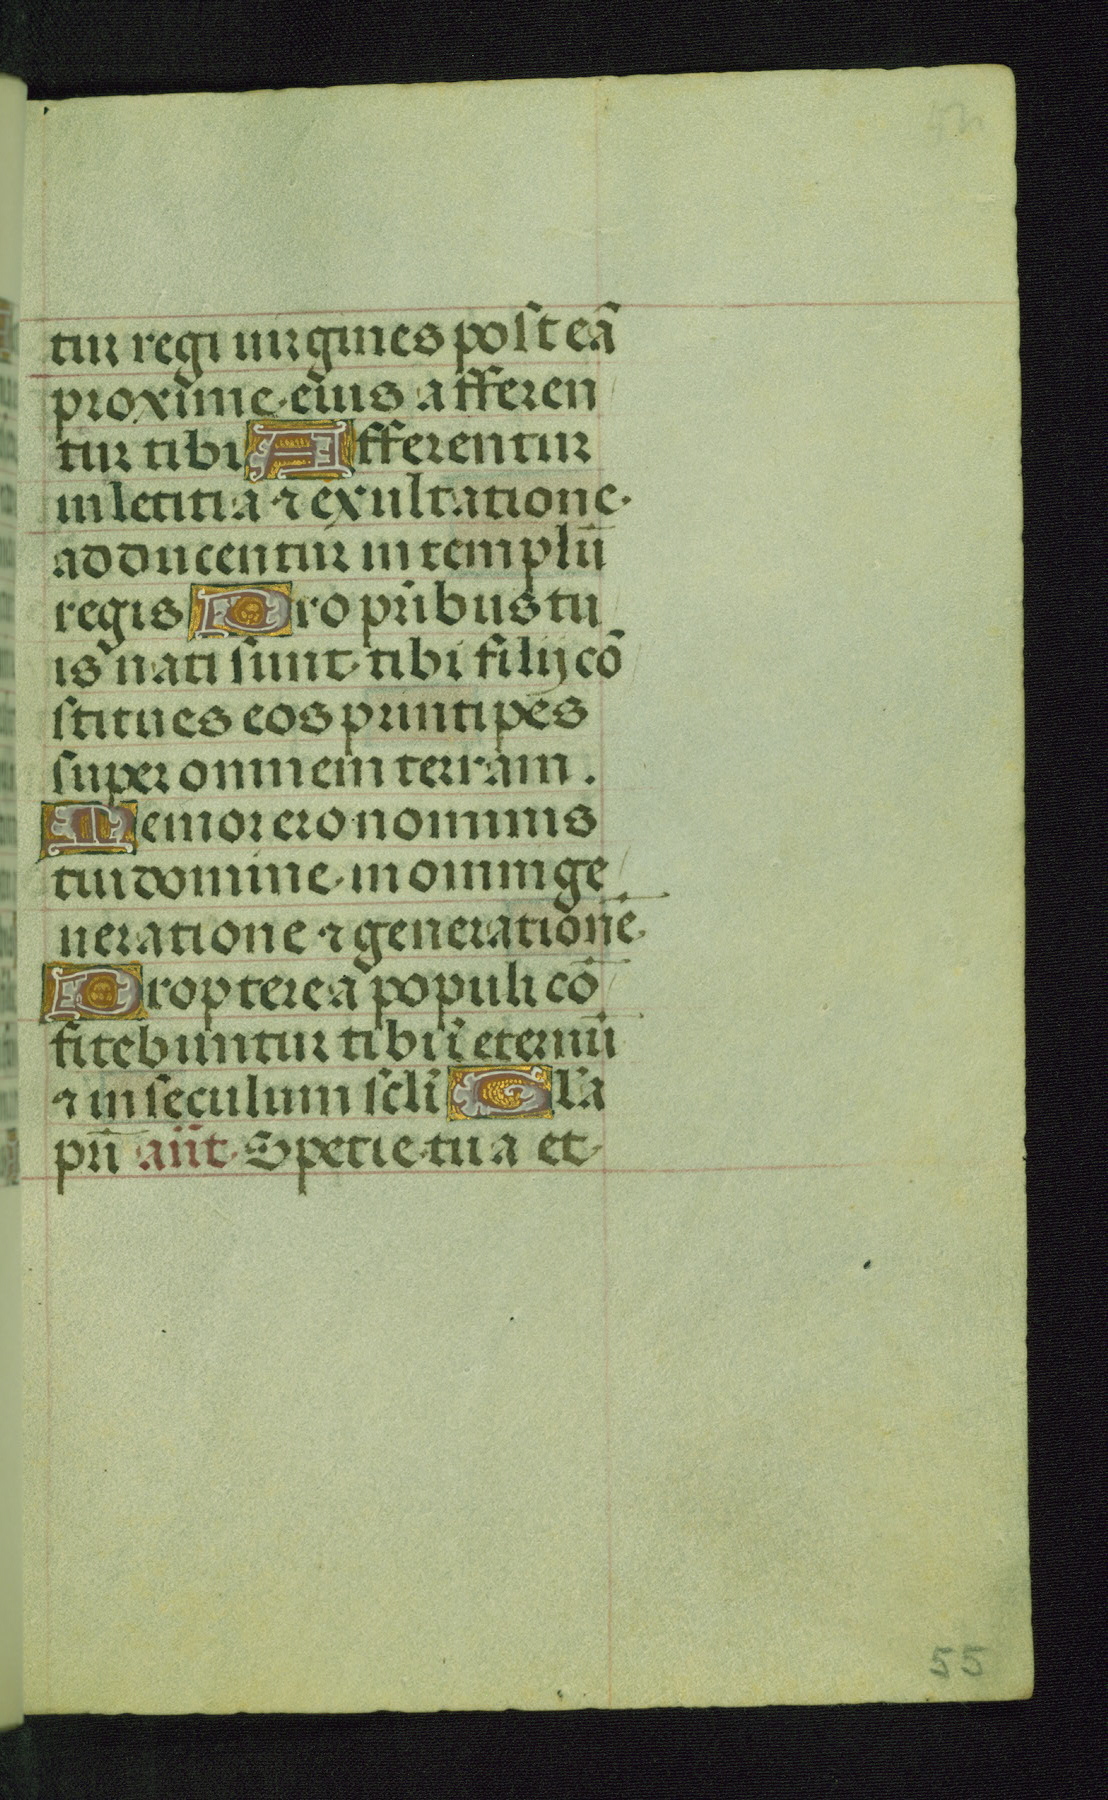 tur regi uirgines post eã
proxime eius afferen
tur tibi Afferentur
in letitia ⁊ exultatione
adducentur in templũ
regis Pro prĩbus tu
is nati sunt tibi filij cõ
stitues eos printipes
super omnem terram.
Memor ero nominis
tui domine in omni ge
neratione ⁊ generationẽ
Propterea populi cõ
fitebuntur tibi ĩ eternũ
⁊ in seculum sclĩ Gl'a
prĩ añt Spetie tua et
55